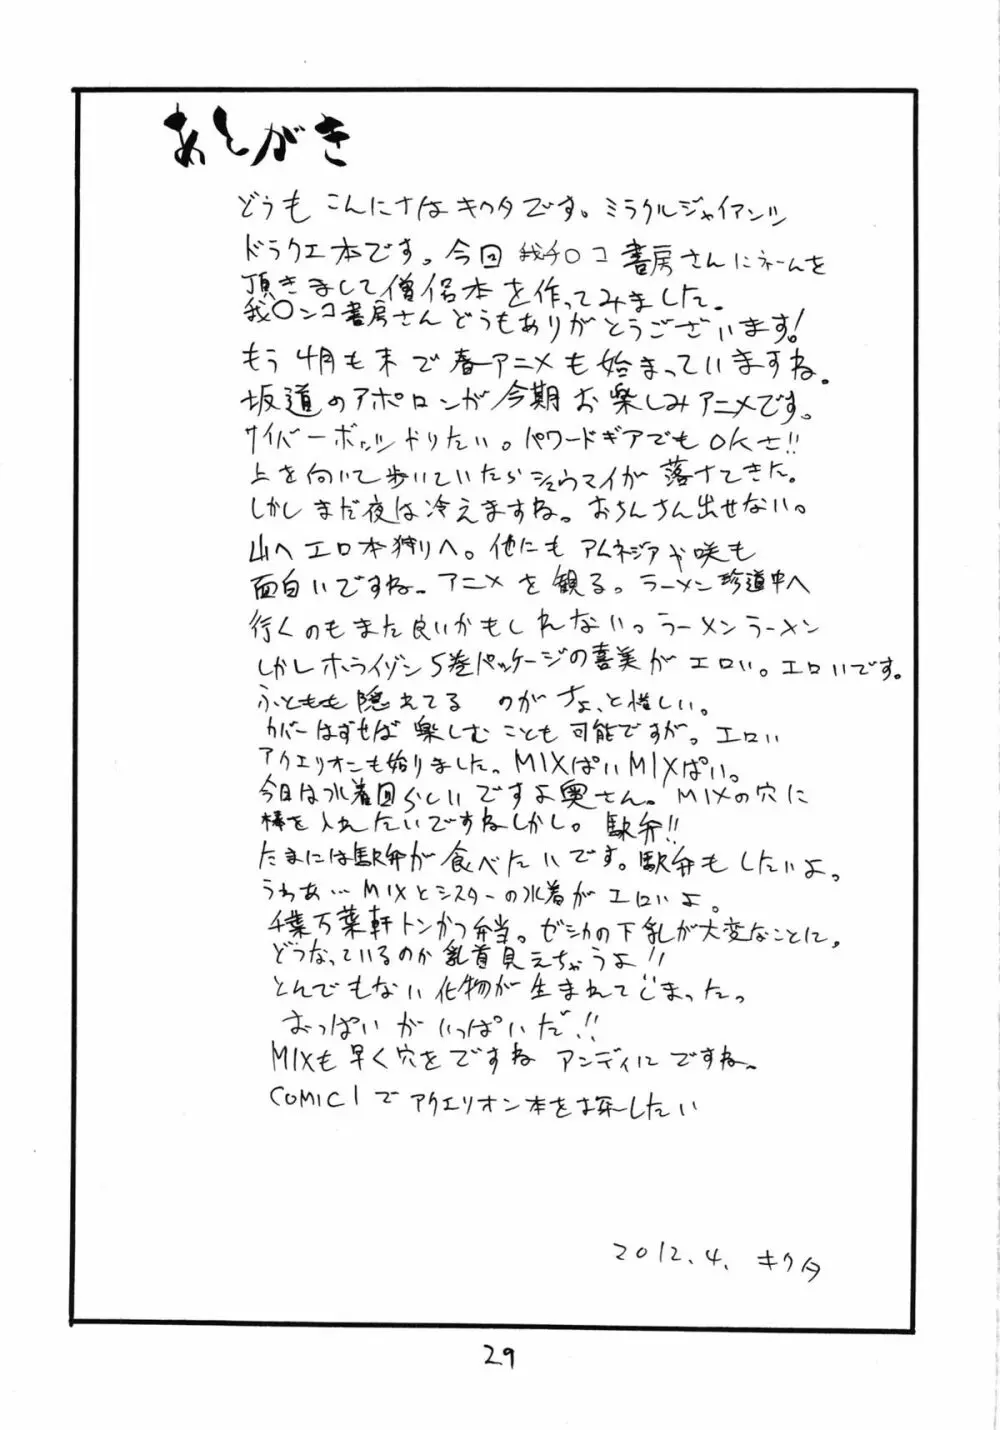 あとがき
どうも こんにちは キクタです。ミラクルジャイアンツ
ドラクエ本です。今回 我チ〇コ書房さんにネームを
頂きまして僧侶本を作ってみました。
我〇ンコ書房さんどうもありがとうございます!
もう 4月も末で春アニメも始まっていますね。
坂道のアポロンが今期お楽しみアニメです。
サイバーボッツドりたい。パワードギアでもOKさ!!
上を向いて歩いていたらシュウマイが落ちてきた。
しかしまだ夜は冷えますね。おちんさん出せない。
山へエロ本狩りへ。他にもアムネジアや咲も
面白いですね。アニメを観る。ラーメン珍道中へ
行くのもまた良いかもしれない。ラーメンラーメン
しかしホライゾン5巻パッケージの喜美がエロい。エロいです。
ふともも隠れてる のがちょっと惜しい。
カバーはずせば楽しむことも可能ですが。エロい
アクエリオンも始りました。MIXぱいMIXぱい。
今日は水着回らしいですよ奥さん。MIXの穴に
棒を入れたいですねしかし。駅弁!!
たまには駅弁が食べたいです。駅弁もしたいよ。
うわあ…MIXとシスターの水着がエロいよ。
千葉万葉軒トンかつ弁当。ゼシカの下乳が大変なことに。
どうなっているのか乳首見えちゃうよ!!
とんでもない化物が生まれてしまったっ
おっぱいがいっぱいだ!!
MIXも早く穴をですね アンディにですね。
COMIC1でアクエリオン本をお探したい
2012.4. キクタ
29